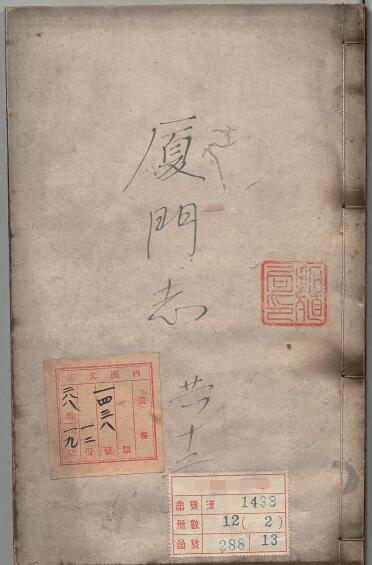 厦門志
共十二
拓殖
局印
内閣文庫
一四三八號
一二冊
二八八函
一九
番號 漢 1438
冊數 12 ( 2 )
函號 288 13